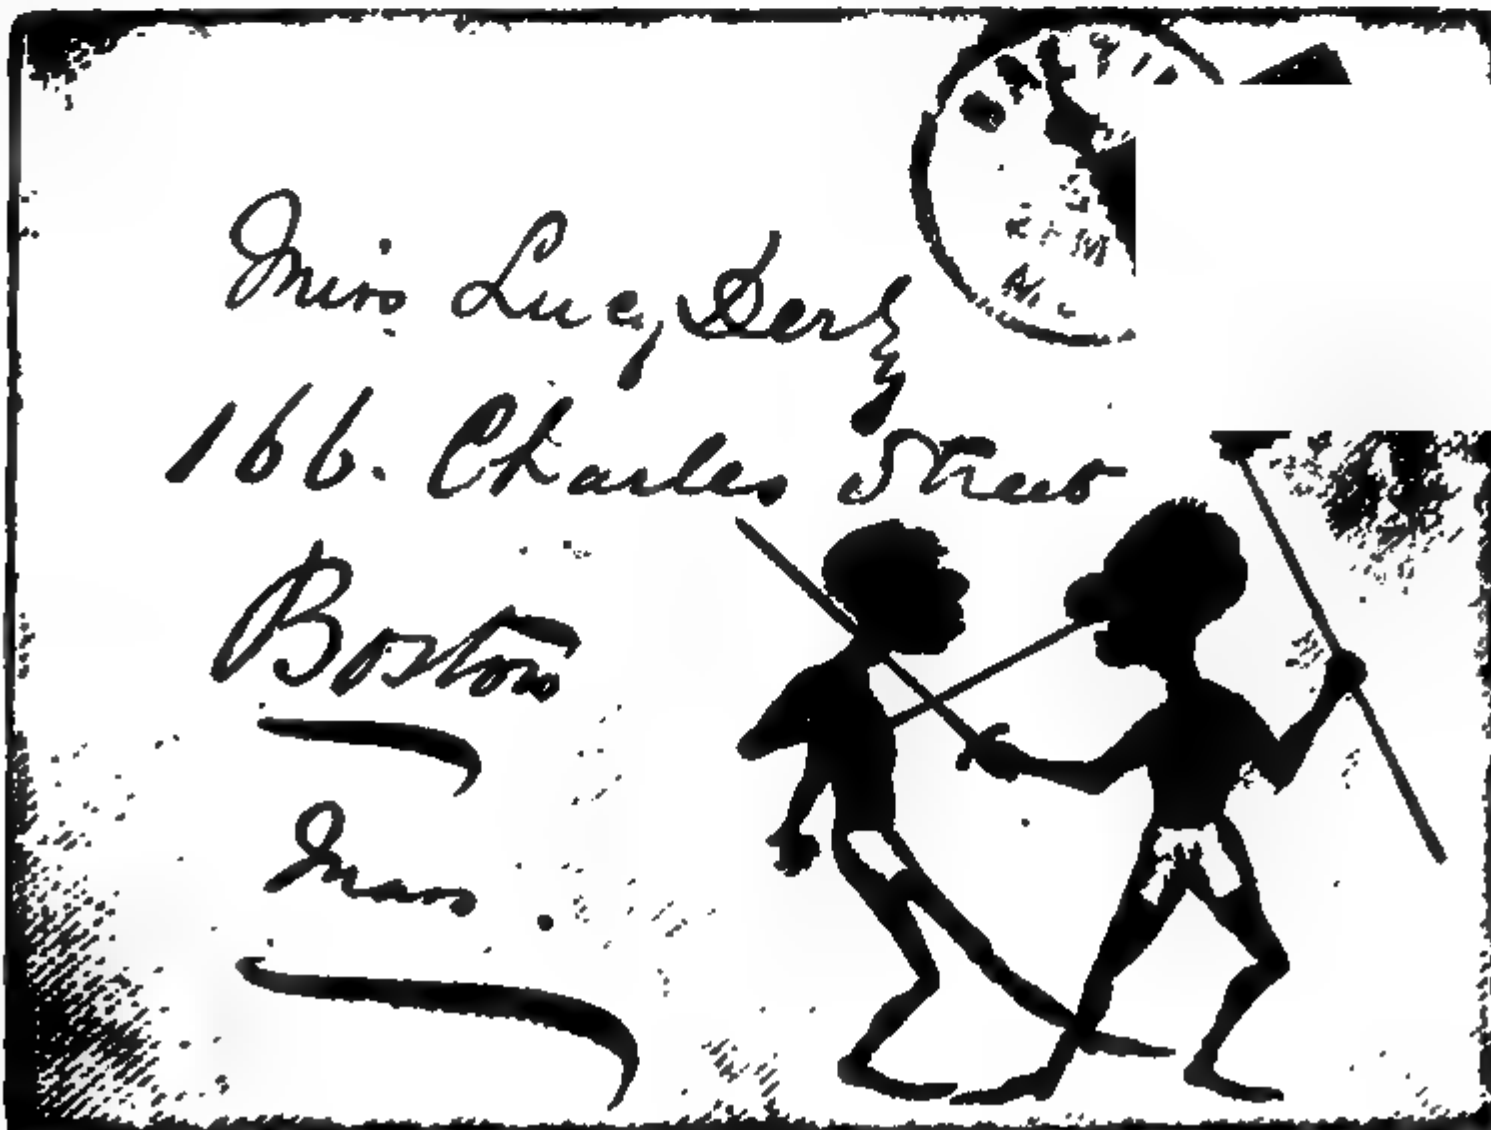 Miss Lucy Derby
166. Charles Street
Boston
Mass.